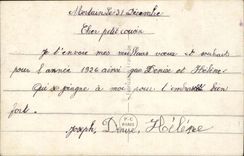 Mortain le 31 Décembre
Cher petit cousin
Je t'envoie mes meilleurs voeux et souhaits
pour l'année 1926 ainsi que Denise et Hélène
Qui se joigne à moi pour t'embrasser bien
fort.
Joseph, Denise, Hélène